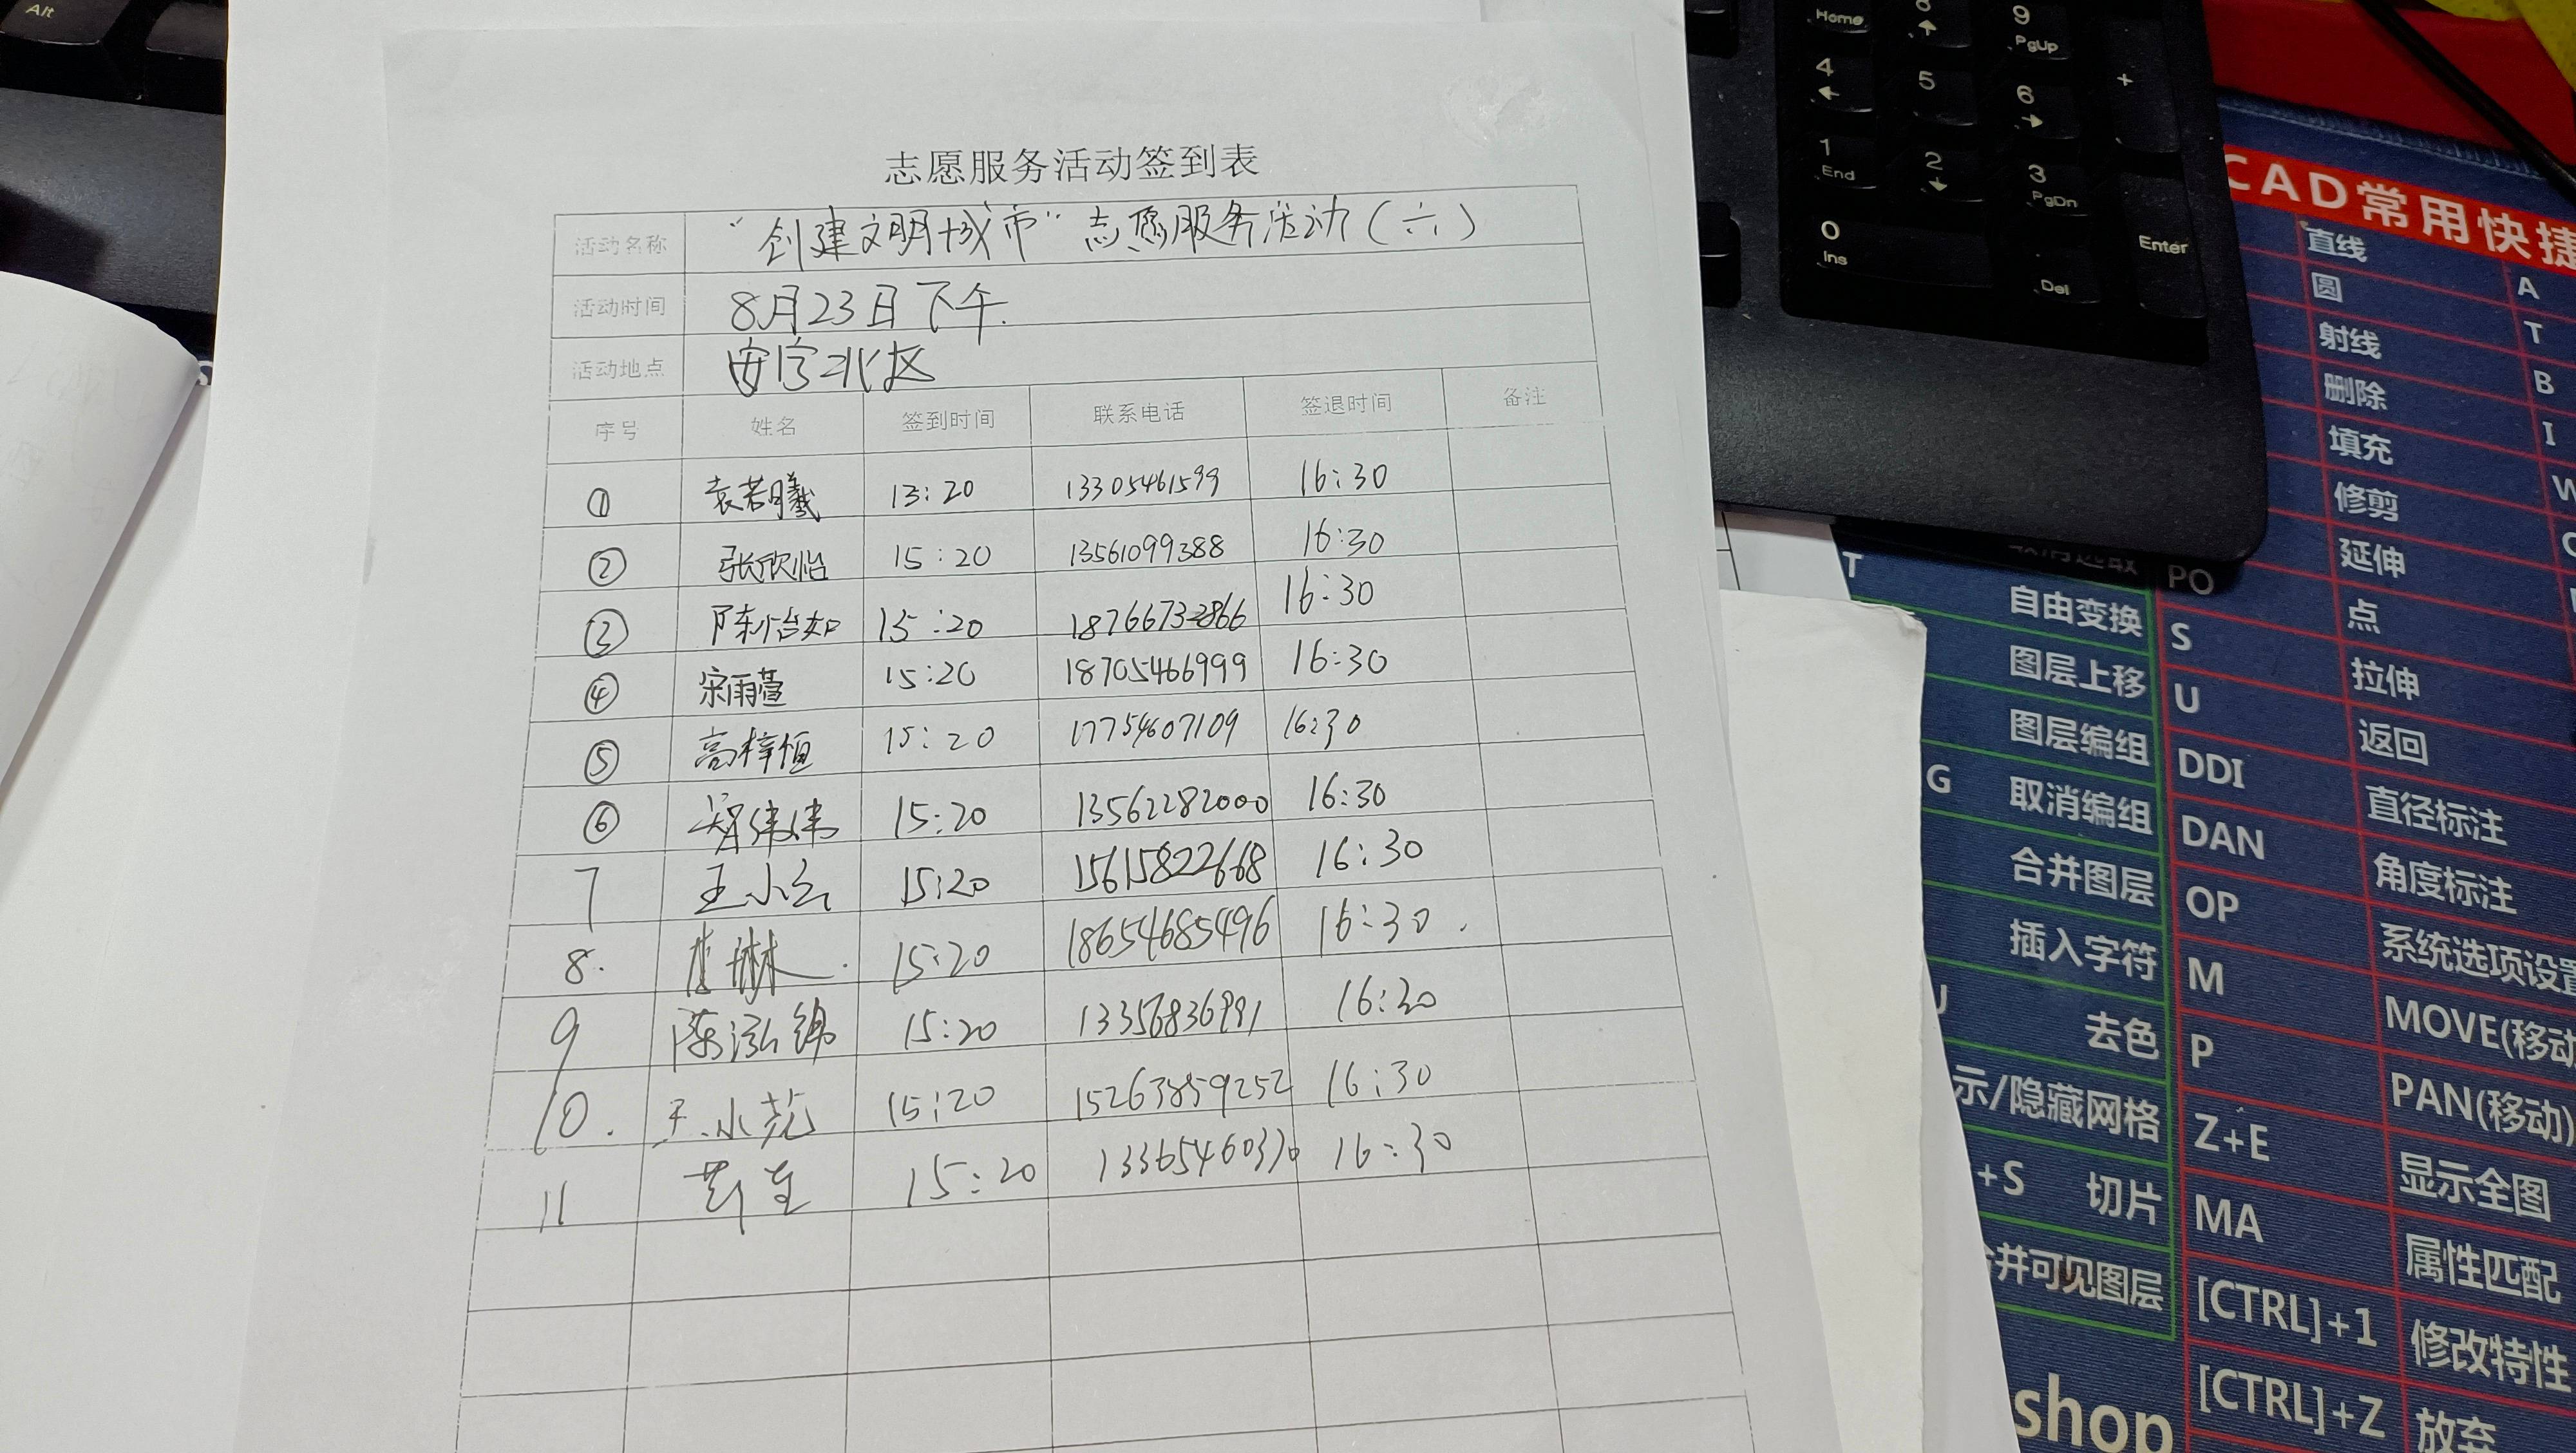 志愿服务活动签到表
活动名称 “创建文明城市”志愿服务活动(六)
活动时间 8月23日下午.
活动地点 安宁北区
序号 姓名 签到时间 联系电话 签退时间 备注
① 袁若曦 13:20 13305461599 16:30
② 张欣怡 15:20 13561099388 16:30
③ 陈怡如 15:20 18766732866 16:30
④ 宋雨萱 15:20 18705466999 16:30
⑤ 高梓恒 15:20 17754607109 16:30
⑥ 伟伟 15:20 13562282000 16:30
7 王小云 15:20 15615822668 16:30
8. 李琳 15:20 18654685496 16:30.
9 陈泓锦 15:20 13356836991 16:30
10. 王小苑 15:20 15263859252 16:30
11 15:20 13365460370 16:30
Alt
Home
8
9 PgUp
4
5
6
+
1 End
2
3 PgDn
0 Ins
Del
Enter
CAD常用快捷
直线 A
圆 T
射线 B
删除 I
填充 W
修剪
延伸
PO 点
T 自由变换 S 拉伸
图层上移 U 返回
图层编组 DDI 直径标注
G 取消编组 DAN 角度标注
合并图层 OP 系统选项设置
插入字符 M MOVE(移动
去色 P PAN(移动)
示/隐藏网格 Z+E 显示全图
+S 切片 MA 属性匹配
合并可见图层 [CTRL]+1 修改特性
shop [CTRL]+Z 放弃